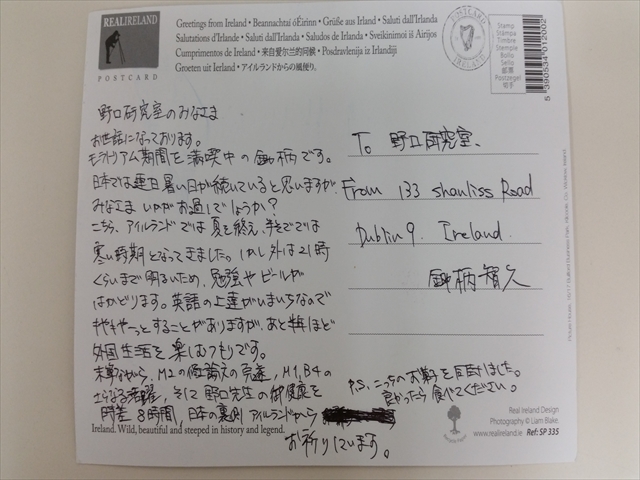 REAL IRELAND
POSTCARD
Greetings from Ireland • Beannachtaí ó Éirinn • Grüße aus Irland • Saluti dall'Irlanda
Salutations d'Irlande • Saluti dall'Irlanda • Saludos de Irlanda • Sveikinimoi iš Airijos
Cumprimentos de Ireland • 来自爱尔兰的问候 • Posdravlenija iz Irlandiji
Groeten uit Ierland • アイルランドからの風便り。
POSTCARD
IRELAND
Stamp
Stampa
Timbre
Stempel
Sello
邮票
Postzegel
切手
5390534012002
野口研究室のみなさま
お世話になっております。
モラトリアム期間を満喫中の鉋柄です。
日本では連日暑い日が続いていると思いますが、
みなさま いかがお過しでしょうか?
こちら、アイルランドでは夏を終え、半そででは
寒い時期となってきました。しかし外は21時
くらいまで明るいため、勉強やビールが
はかどります。英語の上達がいまいちなので
もやもやーっとすることがありますが、あと半年ほど
外国生活を楽しむつもりです。
末筆ながら、M2の修論の完遂、M1, B4の
さらなる活躍、そして野口先生の御健康を
時差8時間、日本の裏側アイルランドから
お祈りしています。
To 野口研究室、
From 133 shanliss Road
Dublin 9. Ireland.
智久
P.S. こっちのお菓子を同封しました。
良かったら食べてください。
Ireland. Wild, beautiful and steeped in history and legend.
Real Ireland Design
Photography © Liam Blake
www.realireland.ie Ref: SP 335